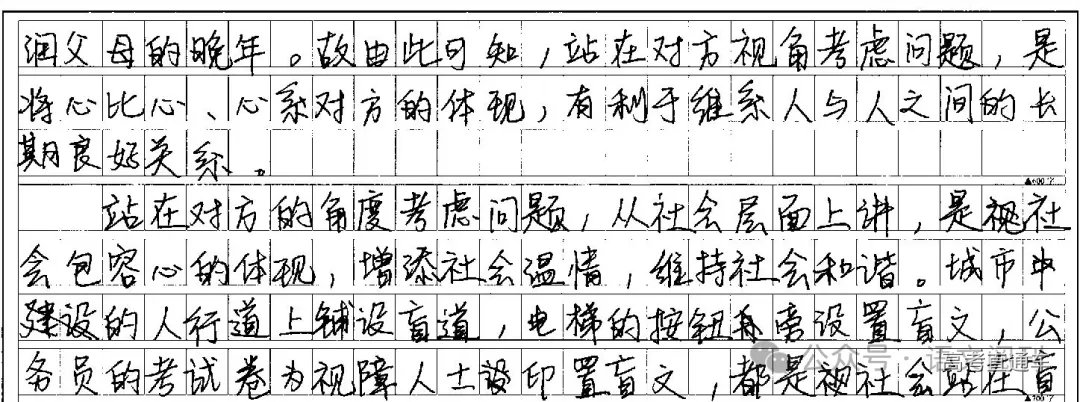 润父母的晚年。故由此可知，站在对方视角考虑问题，是
将心比心、心系对方的体现，有利于维系人与人之间的长
期良好关系。
▲600字
站在对方的角度考虑问题，从社会层面上讲，是视社
会包容心的体现，增添社会温情，维持社会和谐。城市中
建设的人行道上铺设盲道，电梯的按钮旁设置盲文，公
务员的考试卷为视障人士设印置盲文，都是视社会站在盲
公众号·高考直通车
▲700字